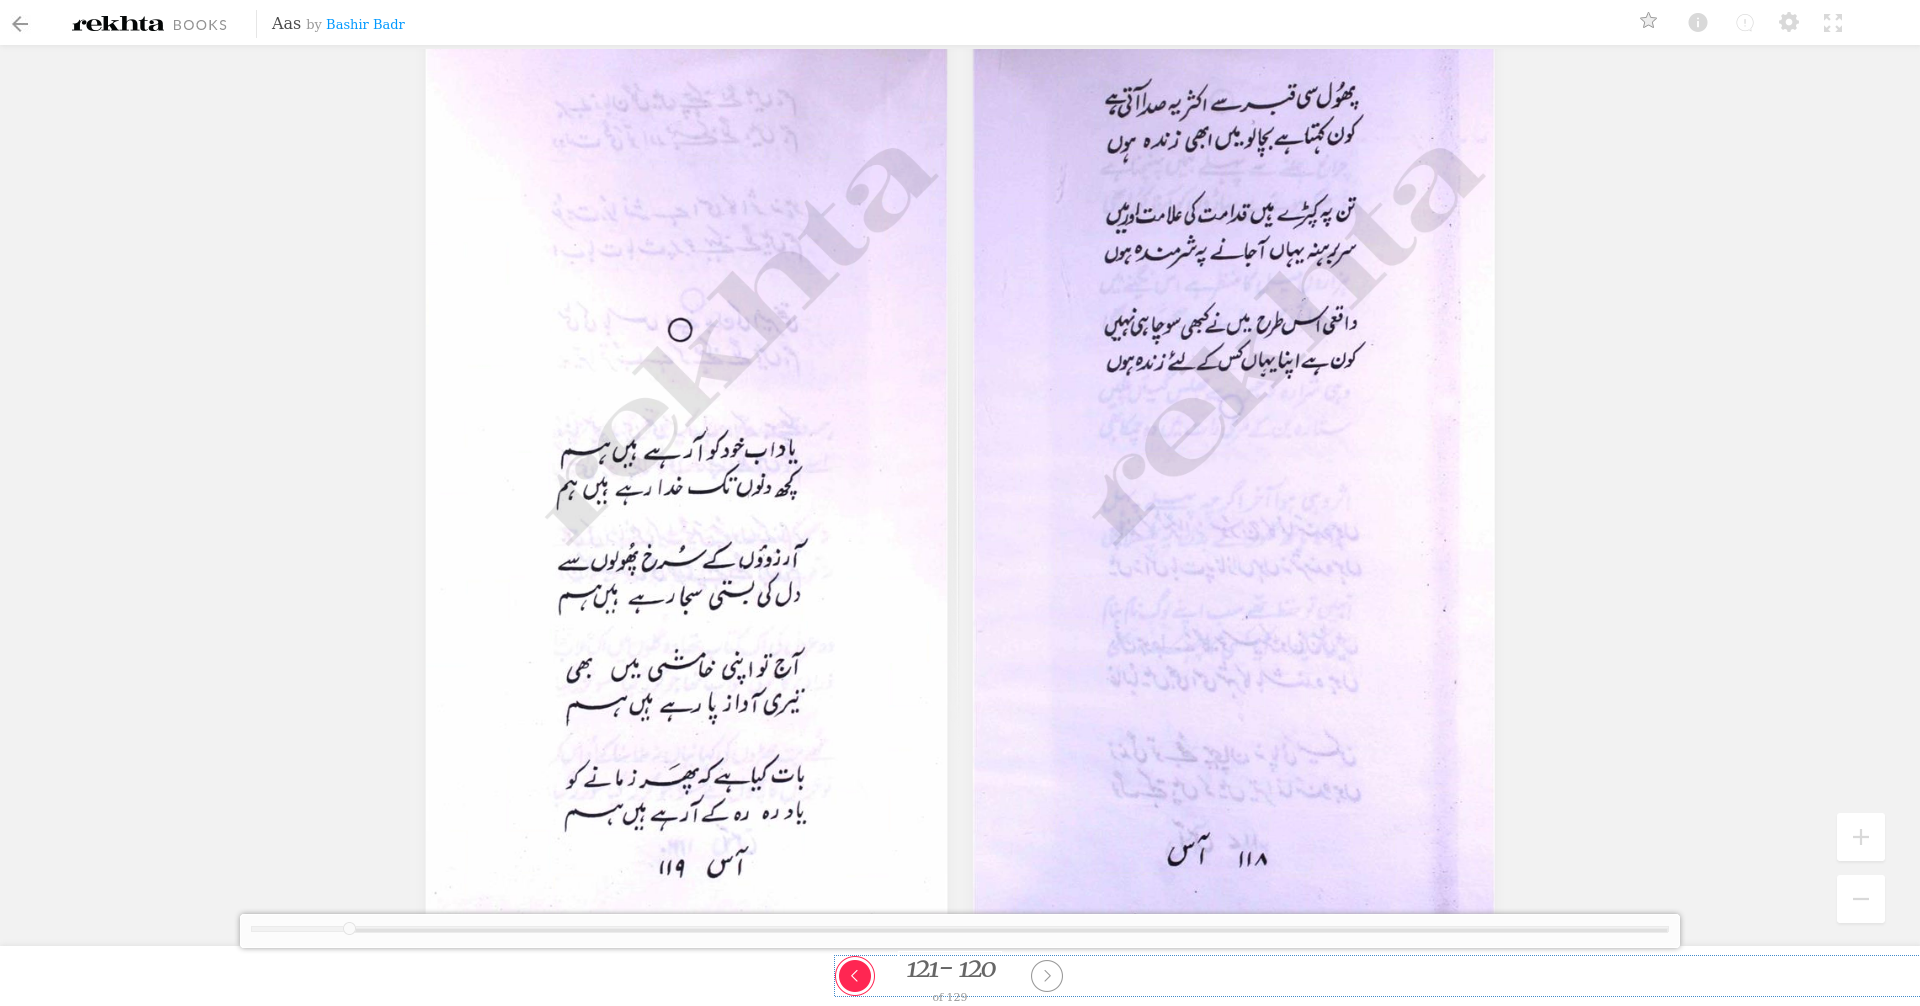 rekhta BOOKS Aas by Bashir Badr
پھول سی قبر سے اکثر یہ صدا آتی ہے
کون کہتا ہے بچا لو میں ابھی زندہ ہوں
تن پہ کپڑے ہیں قدامت کی علامت اور میں
سر برہنہ یہاں آ جانے پہ شرمندہ ہوں
واقعی اس طرح میں نے کبھی سوچا ہی نہیں
کون ہے اپنا یہاں کس کے لئے زندہ ہوں
۱۱۸ آس
یاد اب خود کو آ رہے ہیں ہم
کچھ دنوں تک خدا رہے ہیں ہم
آرزوؤں کے سُرخ پھُولوں سے
دل کی بستی سجا رہے ہیں ہم
آج تو اپنی خامشی میں بھی
تیری آواز پا رہے ہیں ہم
بات کیا ہے کہ پھر زمانے کو
یاد رہ رہ کے آ رہے ہیں ہم
آس ۱۱۹
rekhta
rekhta
121- 120
of 129